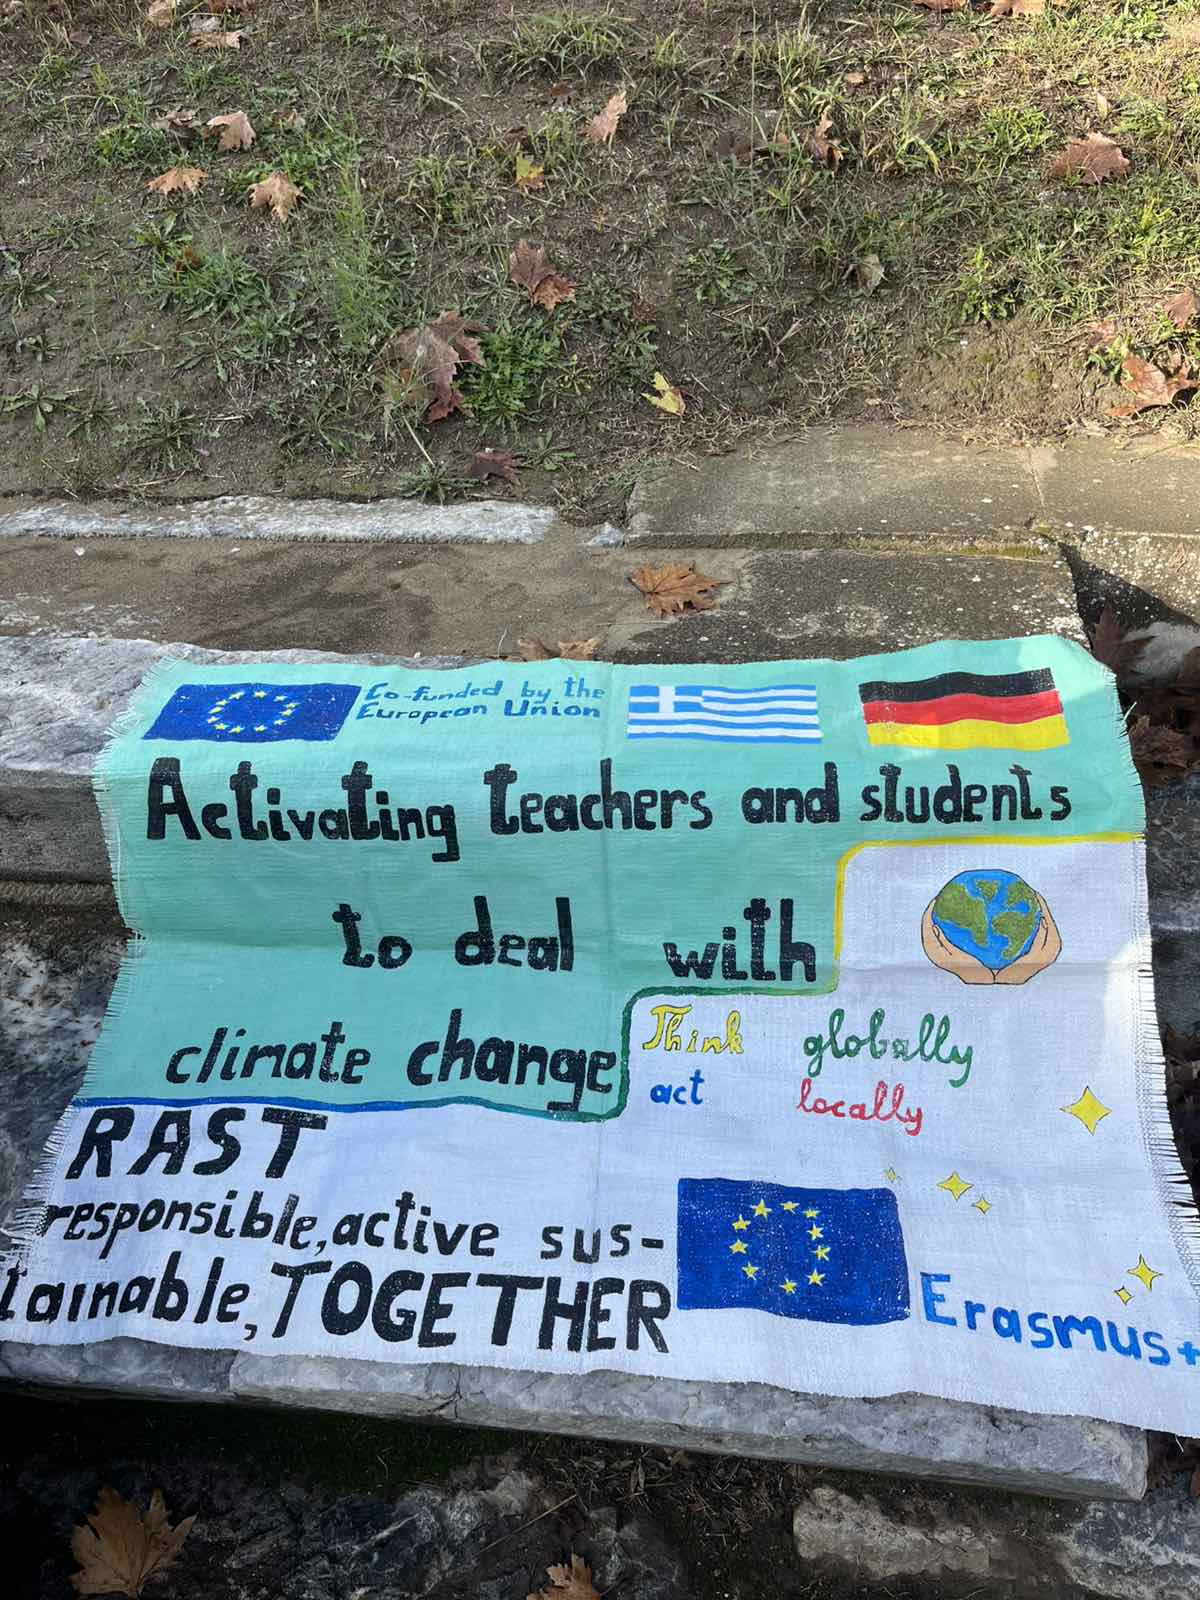 Co-funded by the
European Union
Activating teachers and students
to deal with
climate change
Think globally
act locally
RAST
responsible, active sus-
tainable, TOGETHER
Erasmus+